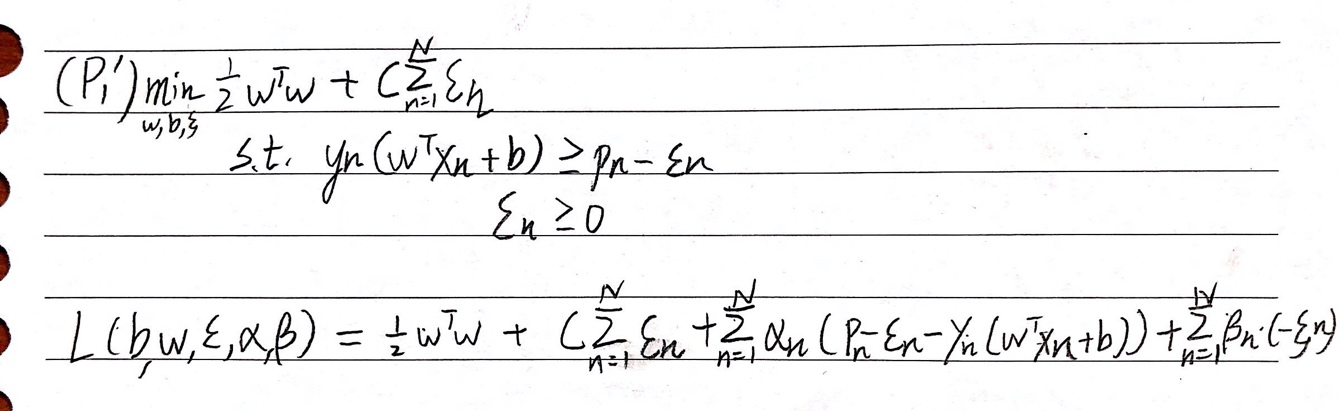 (P₁') min ½ wᵀw + C Σ εn
w,b,ξ n=1 N
s.t. yn(wᵀxn+b) ≥ pn - εn
εn ≥ 0
L(b,w,ε,α,β) = ½ wᵀw + C Σₙ₌₁ᴺ εn + Σₙ₌₁ᴺ αn (pn - εn - yn(wᵀxn+b)) + Σₙ₌₁ᴺ βn·(-ξn)